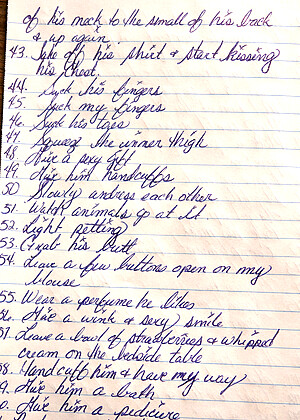 of his neck to the small of his back
& up again
43. Take of his shirt & start kissing
his chest.
44. Suck his fingers
45. Suck my fingers
46. Suck his toes
47. Squeeze the inner thigh
48. Give a sexy gift
49. Give him handcuffs
50 Slowly undress each other
51. Watch animals go at it
52. Light petting
53. Grab his butt
54. Leave a few buttons open on my
blouse
55. Wear a perfume he likes
56. Give a wink & sexy smile
57. Leave a bowl of strawberries & whipped
cream on the bedside table
58. Handcuff him & have my way
9. Give him a bath
0. Give him a pedicure